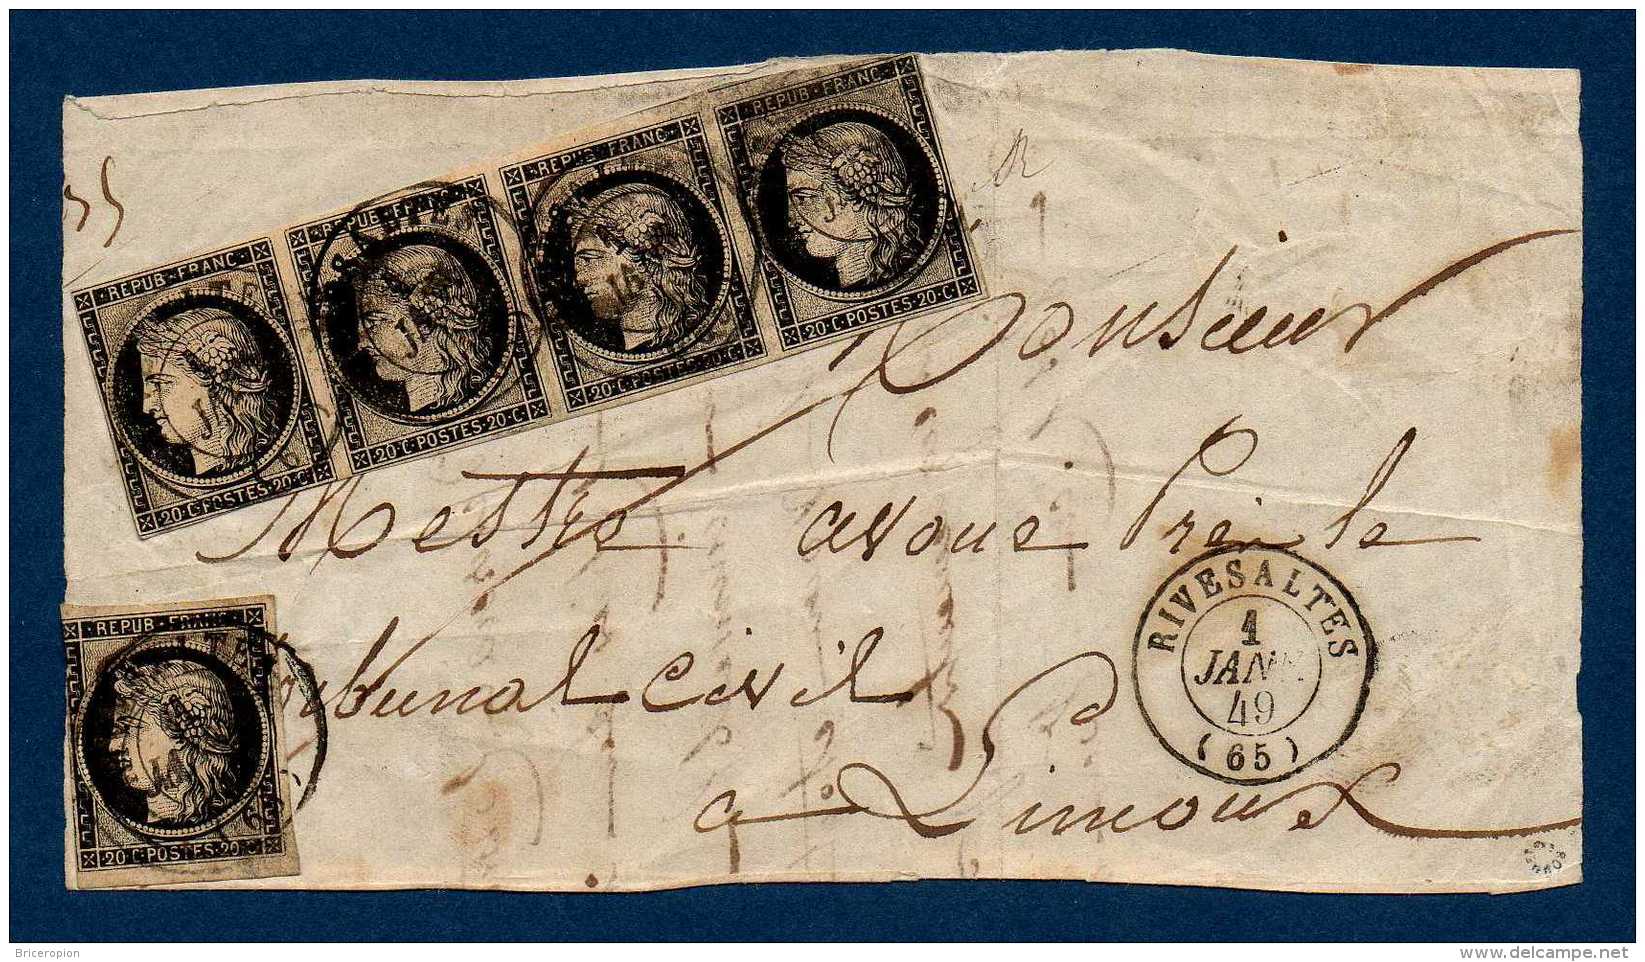 REPUB·FRANC·
REPUB·FRANC·
REPUB·FRANC·
REPUB·FRANC·
·20·C·POSTES·20·C·
·20·C·POSTES·20·C·
·20·C·POSTES·20·C·
·20·C·POSTES·20·C·
Monsieur
Mestre avoué Près le
tribunal civil
a Limoux
REPUB·FRANC·
·20·C·POSTES·20·C·
RIVESALTES
1
JANV.
49
(65)
Briceropion
delcampe.net